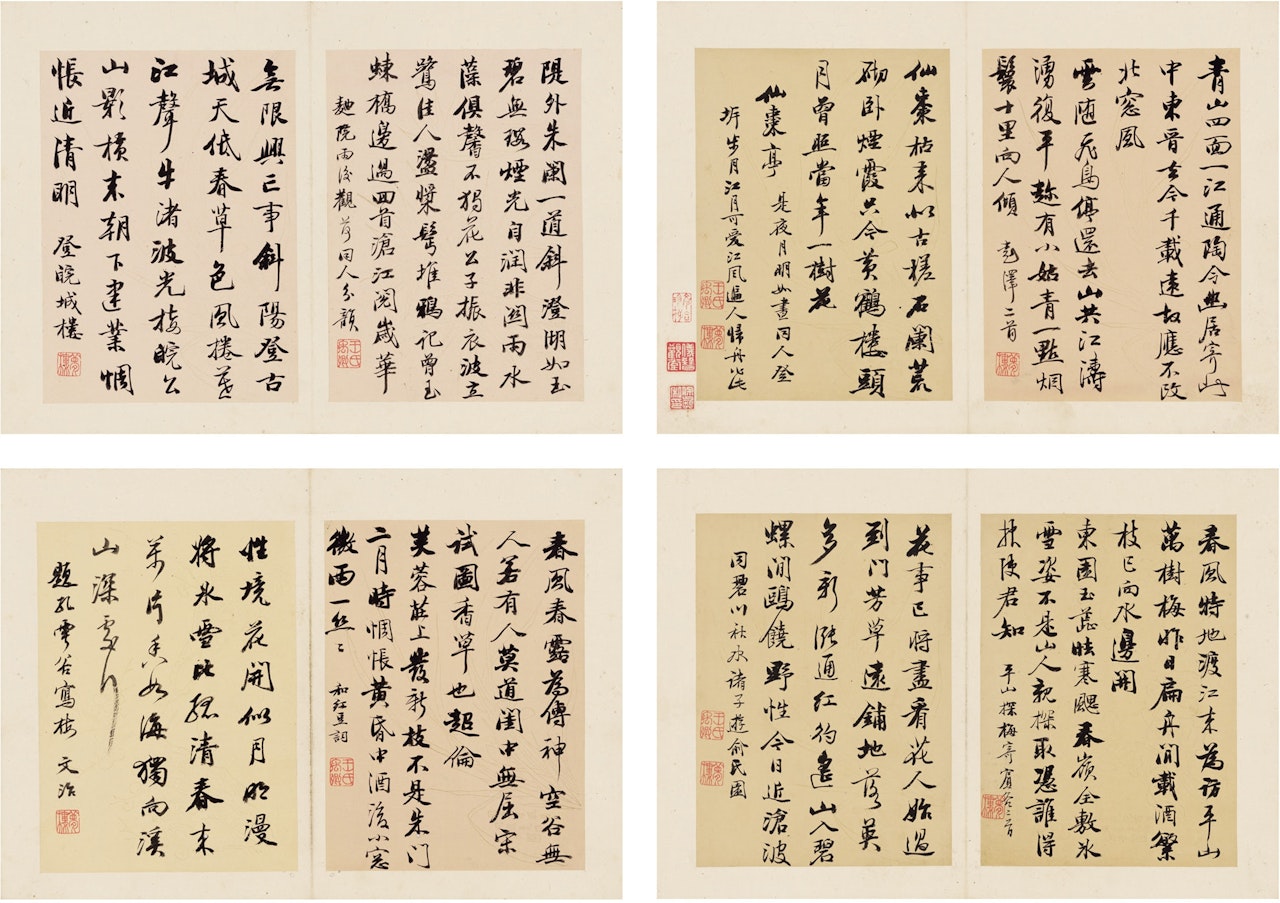 青山四面一江通陶令幽居寄此
中東晉去今千載遠故應不改
北窓風
雲随飛鳥停還去山共江濤
湧復平 有小姑青一點烟
鬟十里向人傾 彭澤二首
仙棗枯来似古槎石闌荒
砌卧煙霞只今黄鶴楼頭
月曾照當年一樹花
仙棗亭 是夜月明如晝同人登
步月江月可愛江風逼人歸舟
隄外朱闌一道斜澄湖如玉
碧無瑕煙光自潤非關雨水
藻俱馨不獨花公子振衣波立
鷺佳人盪槳髩堆鴉記曾玉
蝀橋邊過回首滄江閲歲華
麯院雨後觀荷同人分韻
無限興亡事斜陽登古
城天低春草色風捲暮
江聲牛渚波光接皖公
山影橫来朝下建業惆
悵近清明 登皖城樓
春風特地渡江来為訪平山
萬樹梅昨日扁舟閒載酒繁
枝已向水邊開
東園玉蕊怯寒颸春嶺全敷氷
雪姿不是山人親探取憑誰得
君知 平山探梅寄賓谷二首
花事已將盡看花人始過
到門芳草遠鋪地落英
多新漲通紅彴遙山入碧
螺閒鷗饒野性今日近滄波
同碧川秋水諸子遊俞氏園
春風春露為傳神空谷無
人若有人莫道閨中無屈宋
試圖香草也超倫
芙蓉莊上發新枝不是朱門
二月時惆悵黄昏中酒後小窓
微雨一絲々 和紅豆詞
性境花開似月明漫
將氷雪比孤清春来
萬片香如海獨向溪
山深處行
題孔雩谷寫梅 文治